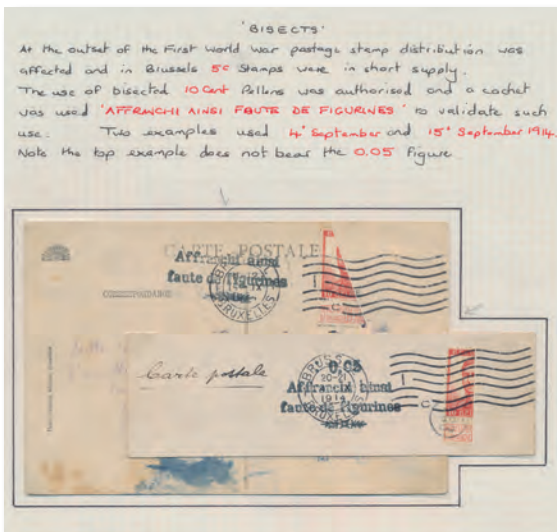 'BISECTS'
At the outset of the First World War postage stamp distribution was
affected and in Brussels 5c Stamps were in short supply.
The use of bisected 10 Cent Pellens was authorised and a cachet
was used 'AFFRANCHI AINSI FAUTE DE FIGURINES' to validate such
use. Two examples used 4' September and 15' September 1914.
Note the top example does not bear the 0.05 figure
CARTE POSTALE
Affranchi ainsi
faute de figurines
BRUXELLES
CORRESPONDANCE
Carte postale
0.05
Affranchi ainsi
faute de figurines
1914
BRUXELLES